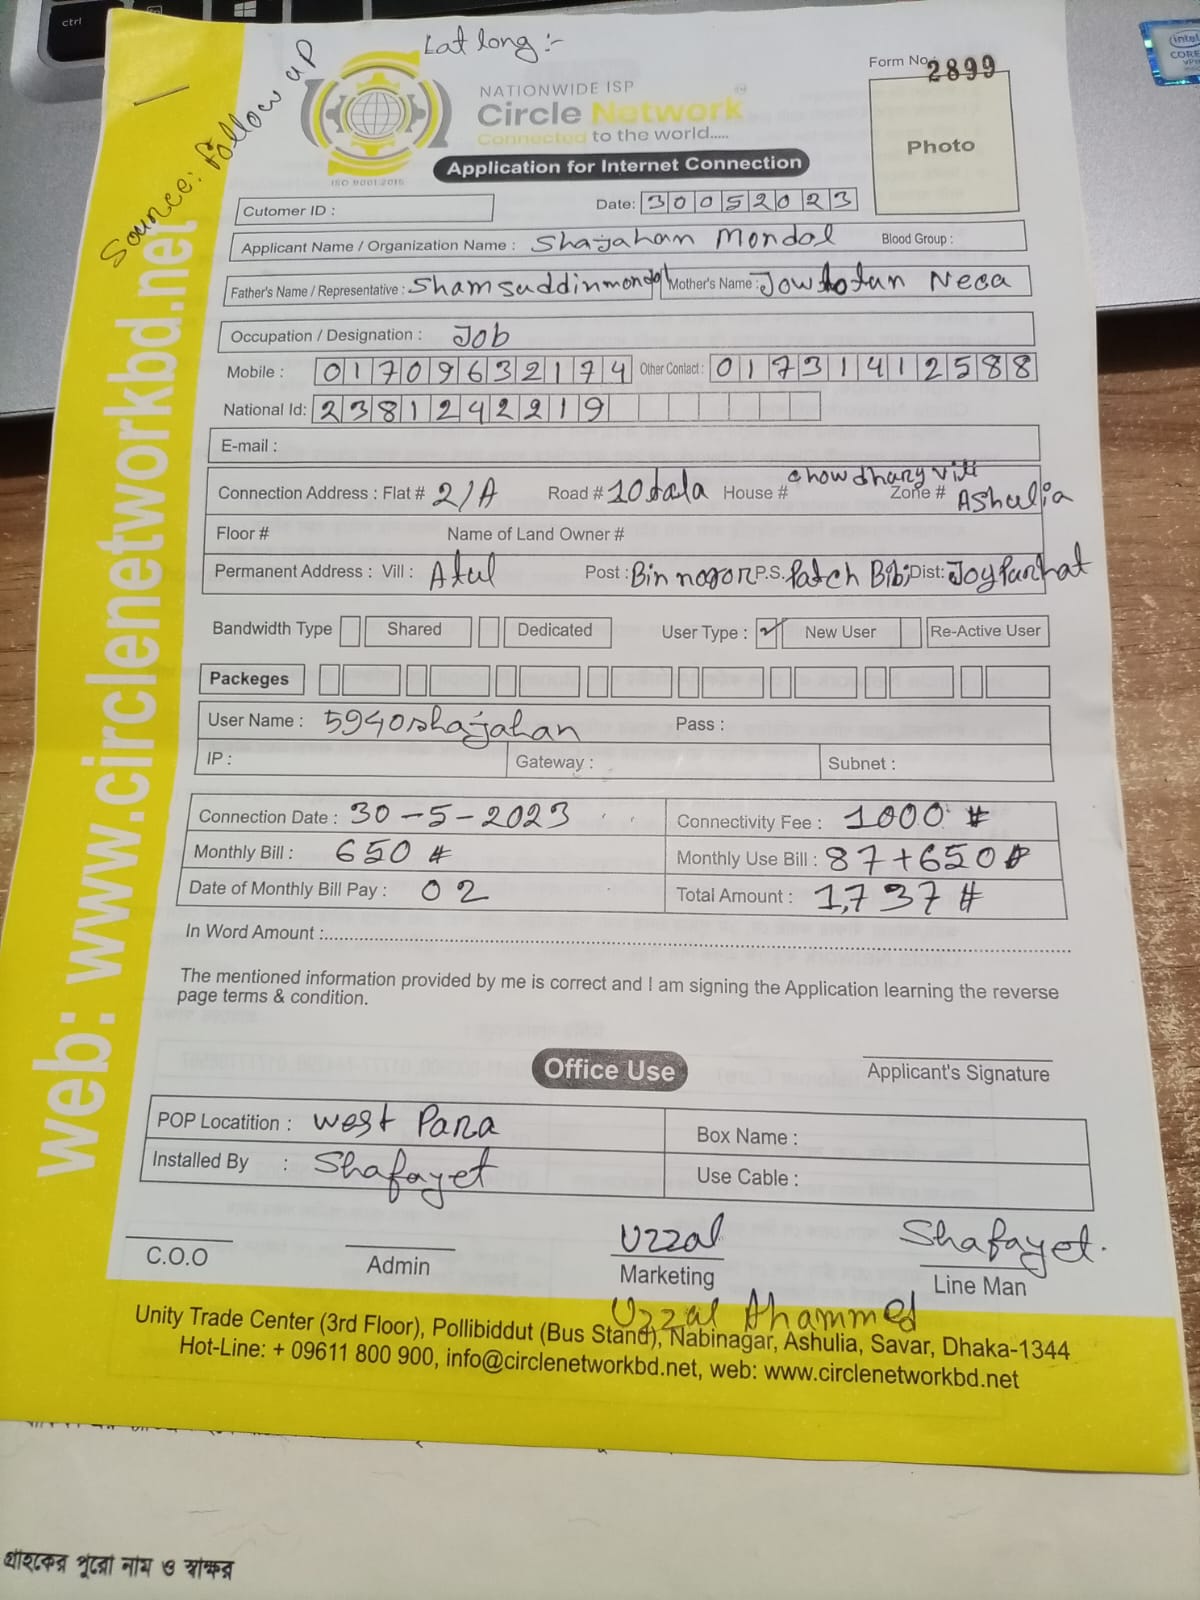 ctrl
Lat long :-
Source: Follow up
NATIONWIDE ISP
Circle Network
Connected to the world.....
ISO 9001:2015
Form No. 2899
Photo
intel
CORE
Application for Internet Connection
Cutomer ID :
Date: 30052023
Applicant Name / Organization Name : Shajahan Mondal Blood Group :
Father's Name / Representative : Shamsuddinmondol Mother's Name : Neca
Occupation / Designation : Job
Mobile : 01709632174 Other Contact : 01731412588
National Id: 2381242219
E-mail :
Connection Address : Flat # 2/A Road # 10 tala House # chowdhary vill Zone # Ashulia
Floor # Name of Land Owner #
Permanent Address : Vill : Atul Post : Binnogor P.S. Patch Bibi Dist: Joypurhat
Bandwidth Type Shared Dedicated User Type : ✓ New User Re-Active User
Packeges
User Name : 5940shajahan Pass :
IP : Gateway : Subnet :
Connection Date : 30-5-2023 Connectivity Fee : 1000 #
Monthly Bill : 650 # Monthly Use Bill : 87+650#
Date of Monthly Bill Pay : 02 Total Amount : 1,737 #
In Word Amount :
The mentioned information provided by me is correct and I am signing the Application learning the reverse
page terms & condition.
Office Use
Applicant's Signature
POP Locatition : West Para Box Name :
Installed By : Shafayet Use Cable :
Uzzal Shafayet.
C.O.O Admin Marketing Line Man
Uzzal Ahammed
Unity Trade Center (3rd Floor), Pollibiddut (Bus Stand), Nabinagar, Ashulia, Savar, Dhaka-1344
Hot-Line: + 09611 800 900, info@circlenetworkbd.net, web: www.circlenetworkbd.net
web: www.circlenetworkbd.net
গ্রাহকের পুরো নাম ও স্বাক্ষর